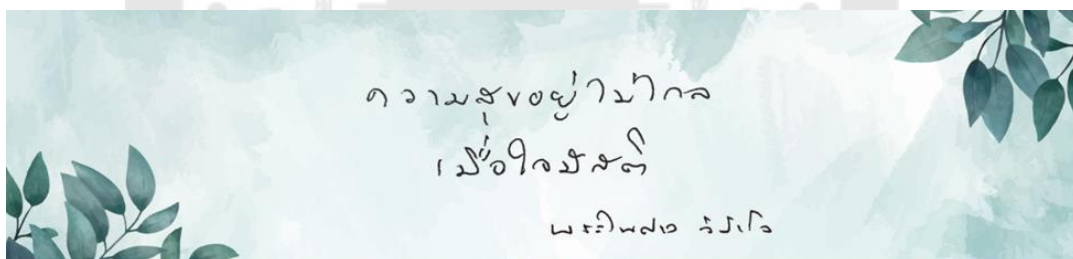 ความสุขอยู่ไม่ไกล
เมื่อใจมีสติ
พระไพศาล วิสาโล